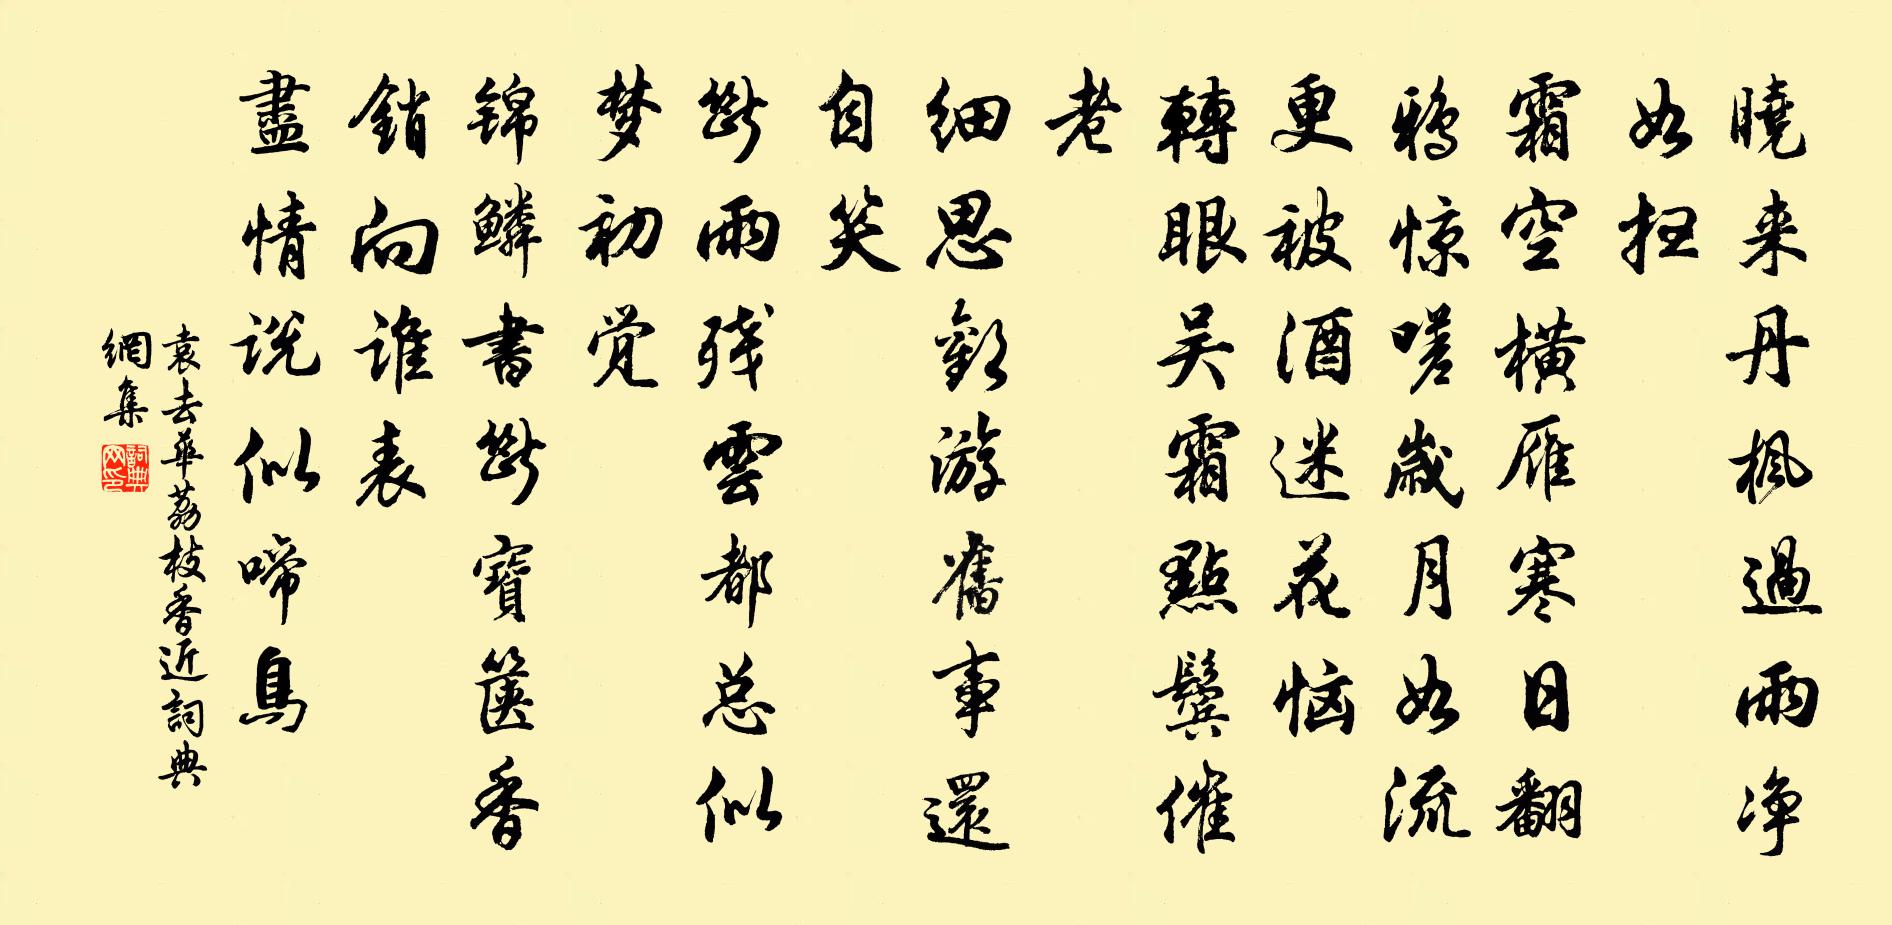 曉来丹楓過雨净
如扫
霜空横雁寒日翻
鸦惊嗟歳月如流
更被酒迷花恼
轉眼吴霜點鬓催
老
细思歡游舊事還
自笑
断雨残雲都总似
梦初觉
锦鱗書断寶篋香
銷向谁表
盡情说似啼鳥
袁去華荔枝香近詞典
網集
詞典网印